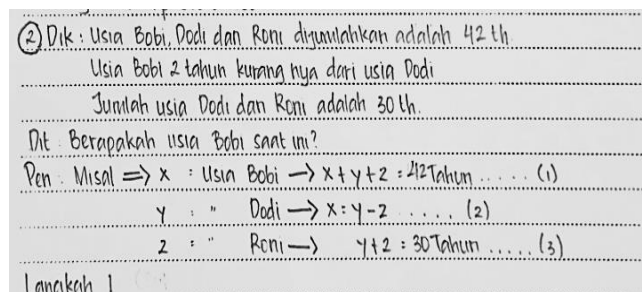 ② Dik : Usia Bobi, Dodi dan Roni dijumlahkan adalah 42 th.
Usia Bobi 2 tahun kurang nya dari usia Dodi
Jumlah usia Dodi dan Roni adalah 30 th.
Dit : Berapakah usia Bobi saat ini?
Pen : Misal => x : Usia Bobi → x + y + z = 42 Tahun ..... (1)
y : " Dodi → x = y - 2 ..... (2)
z : " Roni → y + z = 30 Tahun ..... (3)
Langkah 1